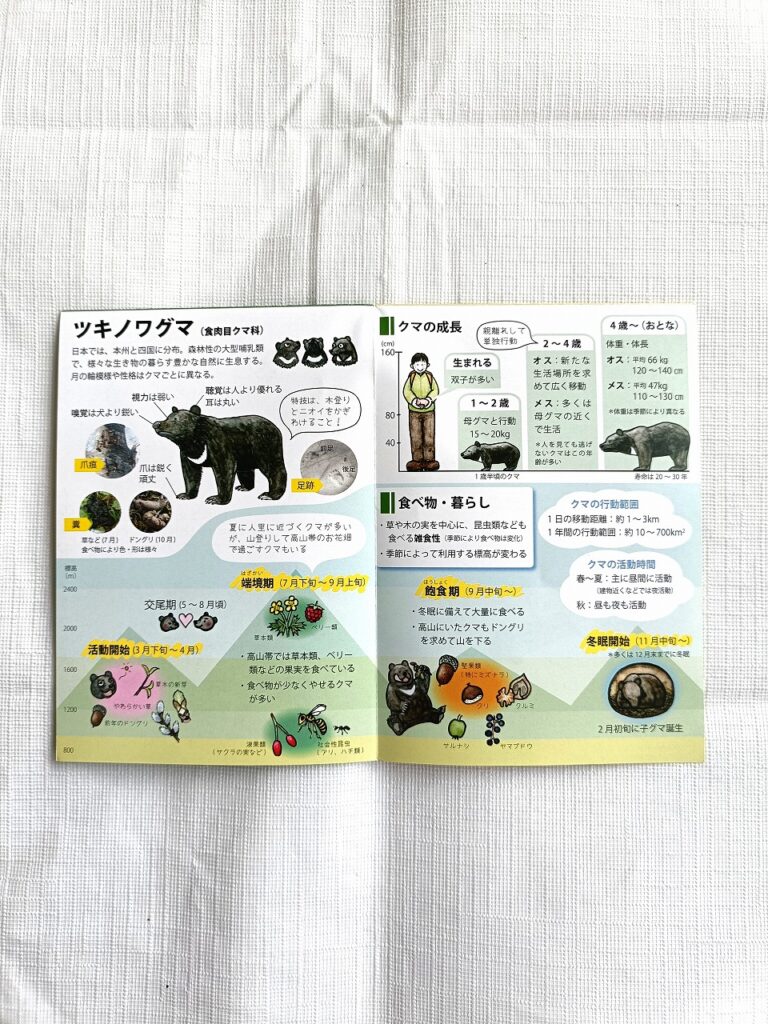 ツキノワグマ（食肉目クマ科）
日本では、本州と四国に分布。森林性の大型哺乳類
で、様々な生き物の暮らす豊かな自然に生息する。
月の輪模様や性格はクマごとに異なる。
視力は弱い
聴覚は人より優れる
耳は丸い
嗅覚は犬より鋭い
特技は、木登り
とニオイをかぎ
わけること！
爪痕
爪は鋭く
頑丈
前足
後足
足跡
糞
草など（7月）
ドングリ（10月）
食べ物により色・形は様々
夏に人里に近づくクマが多い
が、山登りして高山帯のお花畑
で過ごすクマもいる
標高
(m)
2400
2000
1600
1200
800
はざかい
端境期（7月下旬～9月上旬）
交尾期（5～8月頃）
草本類
ベリー類
活動開始（3月下旬～4月）
草木の新芽
やわらかい草
前年のドングリ
・高山帯では草本類、ベリー
類などの果実を食べている
・食べ物が少なくやせるクマ
が多い
液果類
（サクラの実など）
社会性昆虫
（アリ、ハチ類）
クマの成長
(cm)
160
80
40
生まれる
双子が多い
1～2歳
母グマと行動
15～20kg
1歳半頃のクマ
親離れして
単独行動
2～4歳
オス：新たな
生活場所を求
めて広く移動
メス：多くは
母グマの近く
で生活
＊人を見ても逃げ
ないクマはこの年
齢が多い
4歳～（おとな）
体重・体長
オス：平均66kg
120～140cm
メス：平均47kg
110～130cm
＊体重は季節により異なる
寿命は20～30年
食べ物・暮らし
・草や木の実を中心に、昆虫類なども
食べる雑食性（季節により食べ物は変化）
・季節によって利用する標高が変わる
クマの行動範囲
1日の移動距離：約1～3km
1年間の行動範囲：約10～700km²
クマの活動時間
春～夏：主に昼間に活動
（建物近くなどでは夜活動）
秋：昼も夜も活動
ほうしょく
飽食期（9月中旬～）
・冬眠に備えて大量に食べる
・高山にいたクマもドングリ
を求めて山を下る
堅果類
（特にミズナラ）
クリ
クルミ
サルナシ
ヤマブドウ
冬眠開始（11月中旬～）
＊多くは12月末までに冬眠
2月初旬に子グマ誕生